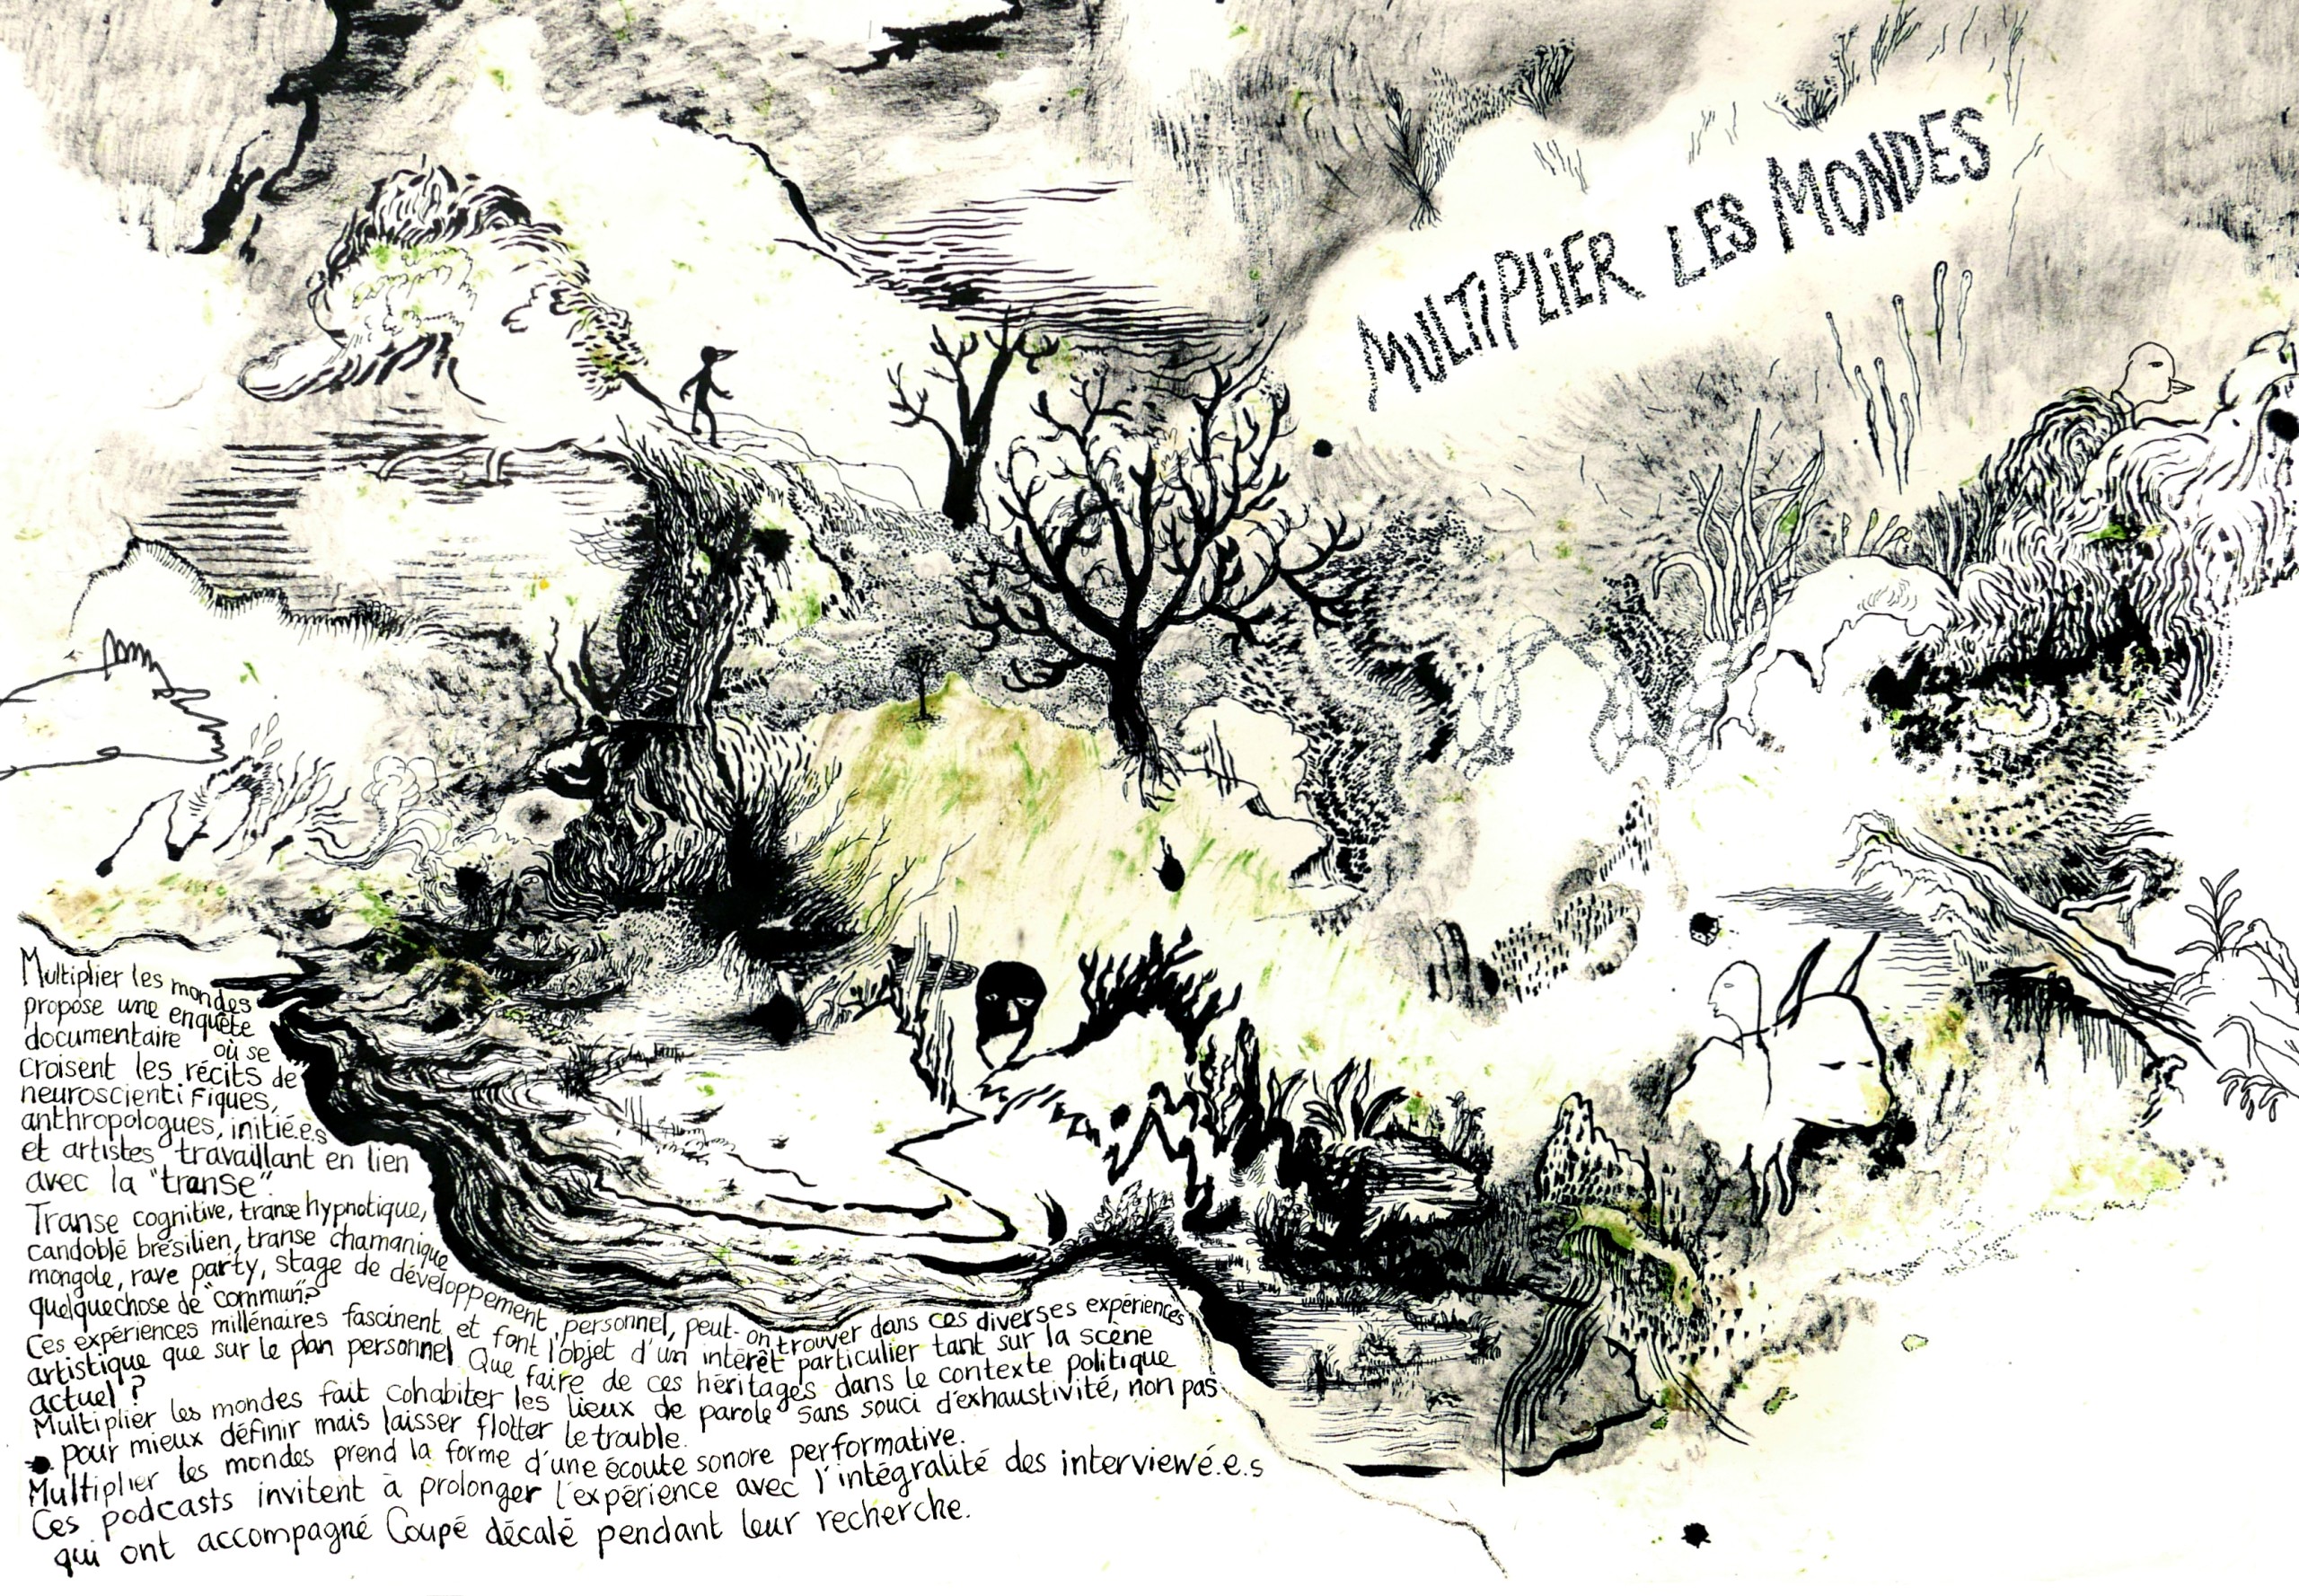 MULTIPLIER LES MONDES
Multiplier les mondes
propose une enquête
documentaire où se
croisent les récits de
neuroscientifiques,
anthropologues, initié.e.s
et artistes travaillant en lien
avec la "transe".
Transe cognitive, transe hypnotique,
candoblé brésilien, transe chamanique
mongole, rave party, stage de développement personnel, peut-on trouver dans ces diverses expériences
quelquechose de "commun"?
Ces expériences millénaires fascinent et font l'objet d'un intérêt particulier tant sur la scène
artistique que sur le plan personnel. Que faire de ces héritages dans le contexte politique
actuel ?
Multiplier les mondes fait cohabiter les lieux de parole sans souci d'exhaustivité, non pas
pour mieux définir mais laisser flotter le trouble.
Multiplier les mondes prend la forme d'une écoute sonore performative.
Ces podcasts invitent à prolonger l'expérience avec l'intégralité des interviewé.e.s
qui ont accompagné Coupé décalé pendant leur recherche.